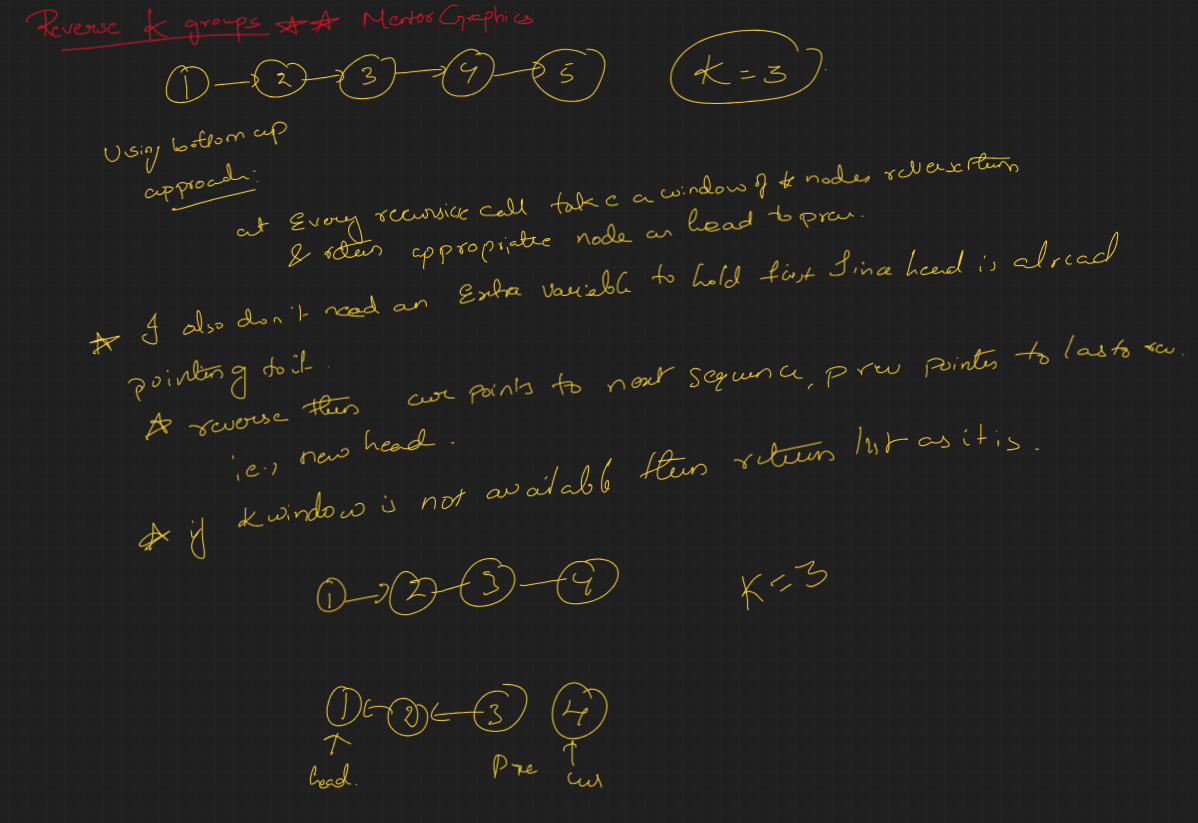 Reverse K groups ☆☆ Mentor Graphics
1 2 3 4 5 K = 3
Using bottom up
approach:
at Every recursive call take a window of k nodes reverse them
& return appropriate node as head to prev.
☆ I also don't need an Extra variable to hold first Since head is alread
pointing to it.
☆ reverse then cur points to next sequence, prev pointes to last
i.e., new head.
☆ if K window is not available then return list as it is.
1 2 3 4 K = 3
1 2 3 4
head. Pre cur